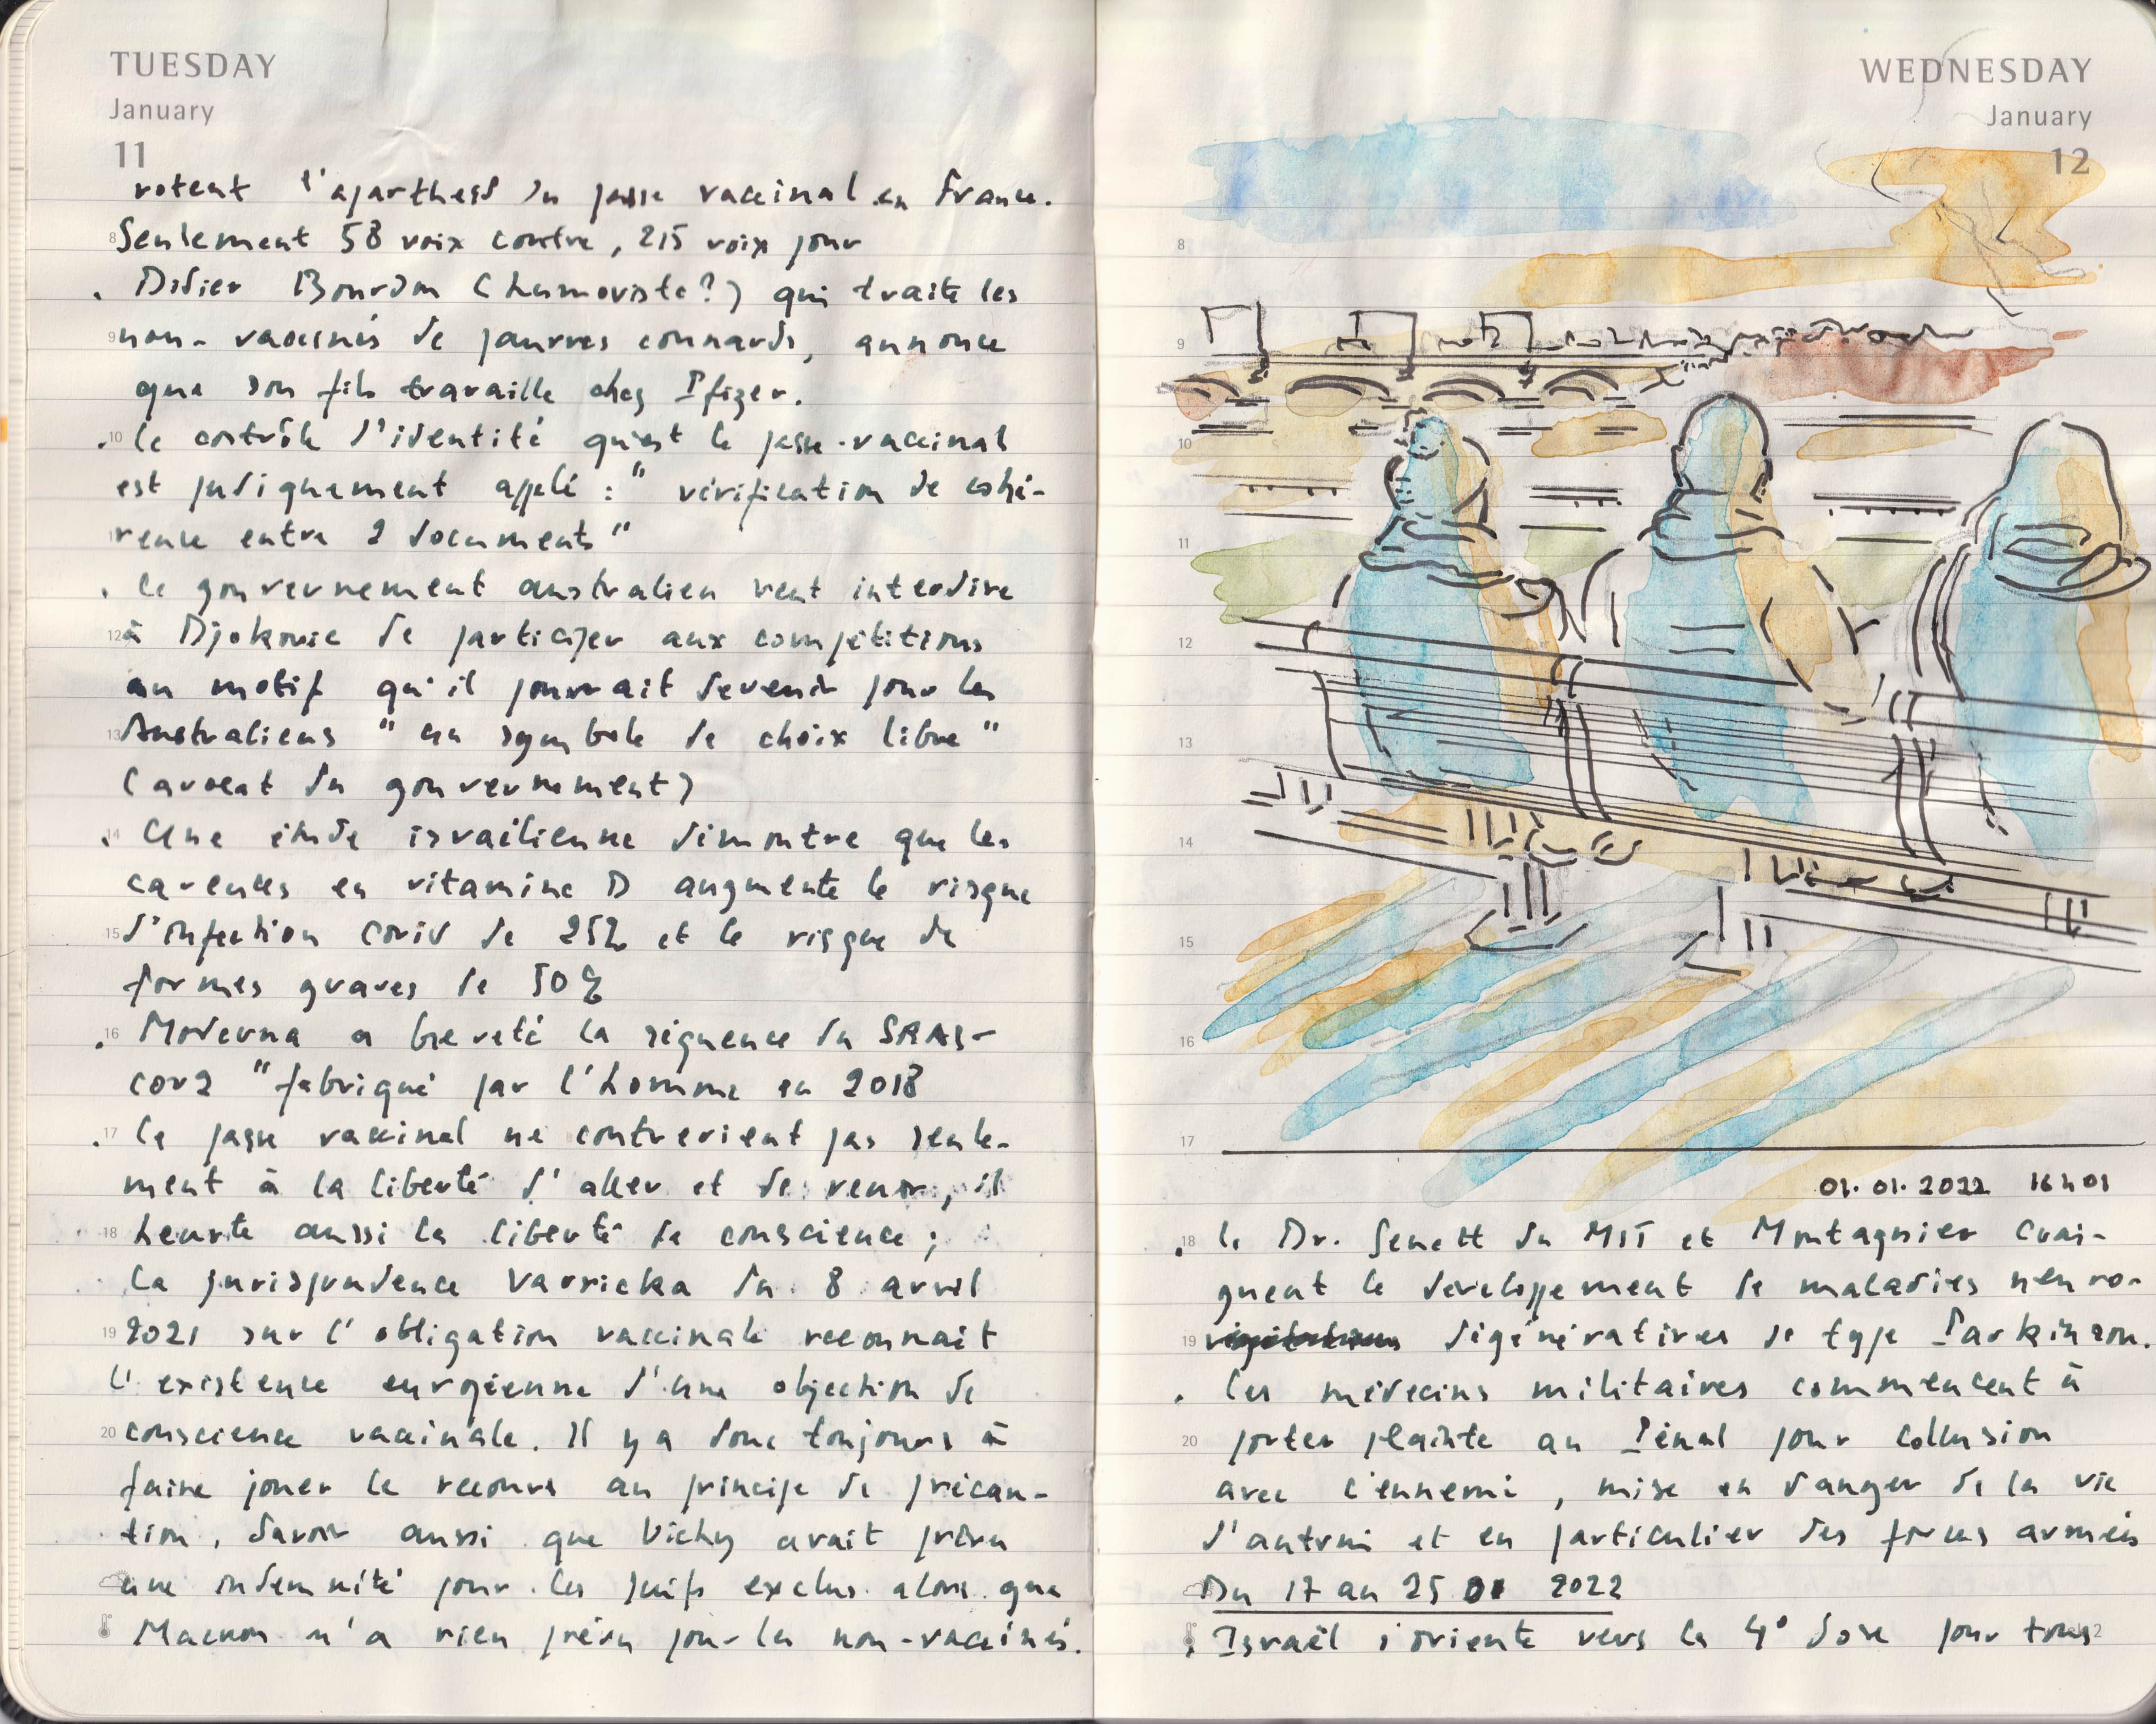 TUESDAY
January
11
votent l'apartheid du passe vaccinal en France.
8 Seulement 58 voix contre, 215 voix pour
. Didier Bourdon (humoriste?) qui traite les
9 non-vaccinés de pauvres connards, annonce
que son fils travaille chez Pfizer.
. 10 le contrôle d'identité qu'est le passe-vaccinal
est judiquement appelé : " vérification de cohé-
rence entre 2 documents"
. le gouvernement australien veut interdire
12 à Djokovic de participer aux compétitions
au motif qu'il pourrait devenir pour les
13 Australiens " un symbole de choix libre "
(avocat du gouvernement)
. 14 Une étude israélienne démontre que les
carences en vitamine D augmente le risque
15 d'infection covid de 25% et le risque de
formes graves de 50%
. 16 Moderna a breveté la séquence du SRAS-
cov2 "fabriqué par l'homme en 2018
. 17 le passe vaccinal ne contrevient pas seule-
ment à la liberté d'aller et de venir, il
18 heurte aussi la liberté de conscience ;
la jurisprudence Vavricka du 8 avril
19 2021 sur l'obligation vaccinale reconnait
l'existence européenne d'une objection de
20 conscience vaccinale. Il y a donc toujours à
faire jouer le recours au principe de précau-
tion, savoir aussi que Vichy avait prévu
une indemnité pour les juifs exclus alors que
Macron n'a rien prévu pour les non-vaccinés.
WEDNESDAY
January
12
8
9
10
11
12
13
14
15
16
17
01.01.2022 16h01
. 18 le Dr. Senett du MIT et Montagnier crai-
gnent le developpement de maladies neuro-
19 dégénératives de type Parkinson.
. les médecins militaires commencent à
20 porter plainte au Pénal pour collusion
avec l'ennemi, mise en danger de la vie
d'autrui et en particulier des forces armées
Du 17 au 25 01 2022
. Israël s'oriente vers la 4° dose pour tous